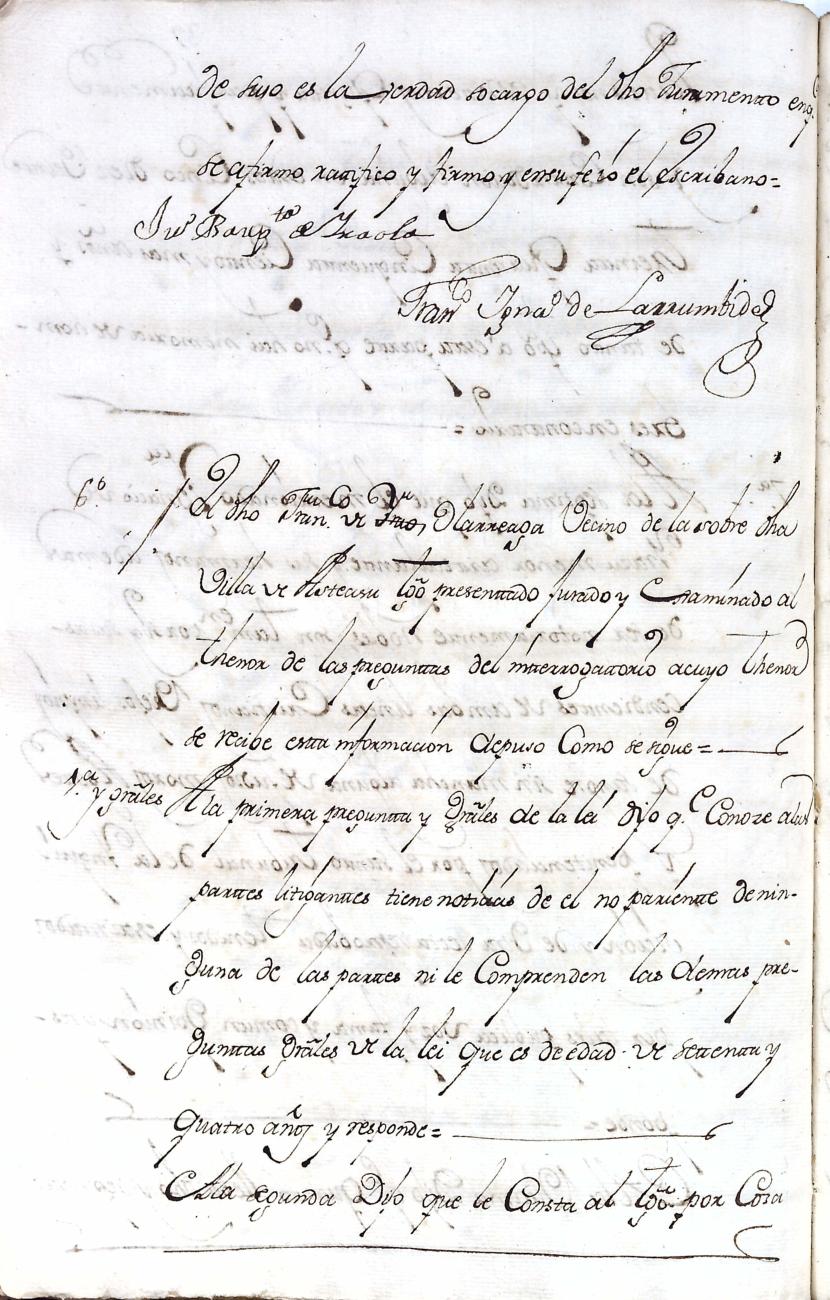 de suso es la verdad so cargo del dho Juramentto en q.
se afirmo rattifico y firmo y en su fe io el Escribano=
Ju.º Baup.ta de Iraola
Fran.co Igna.º de Larrumbide
6.º El dho Fran.co de Larreaga Vecino de la sobre dha
Villa de Asteasu tgo presenttado Jurado y Examinado al
thenor de las pregunttas del interrogattorio a cuyo thenor
se recibe estta informacion depuso Como se sigue=
1.ª y grâles A la primera pregunta y grâles de la lei dijo q.e Conoze a las
parttes litiganttes tiene noticias de el no pariente de nin-
guna de las parttes ni le Comprenden las demas pre-
gunttas grâles de la lei que es de edad de settentta y
quatro años y responde=
A la segunda Dijo que le Consta al tgo por Cosa